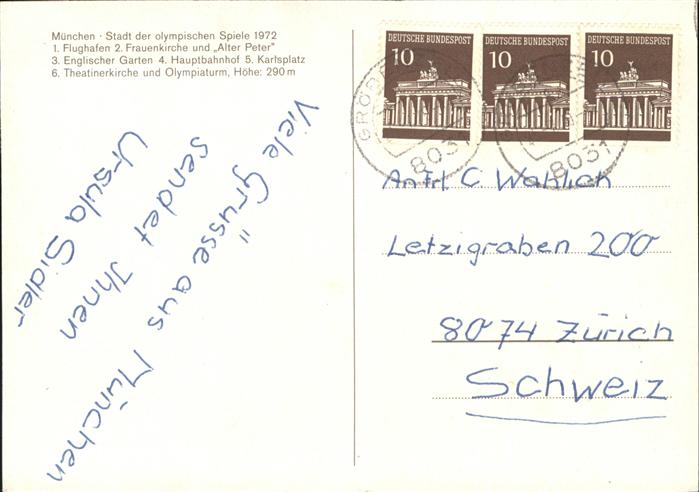 München · Stadt der olympischen Spiele 1972
1. Flughafen 2. Frauenkirche und „Alter Peter"
3. Englischer Garten 4. Hauptbahnhof 5. Karlsplatz
6. Theatinerkirche und Olympiaturm, Höhe: 290 m
Viele Grüsse aus München
sendet Ihnen
Ursula Sidler
DEUTSCHE BUNDESPOST
10
DEUTSCHE BUNDESPOST
10
DEUTSCHE BUNDESPOST
10
8031
8031
An Frl. C. Wablich
Letzigraben 200
8074 Zürich
Schweiz